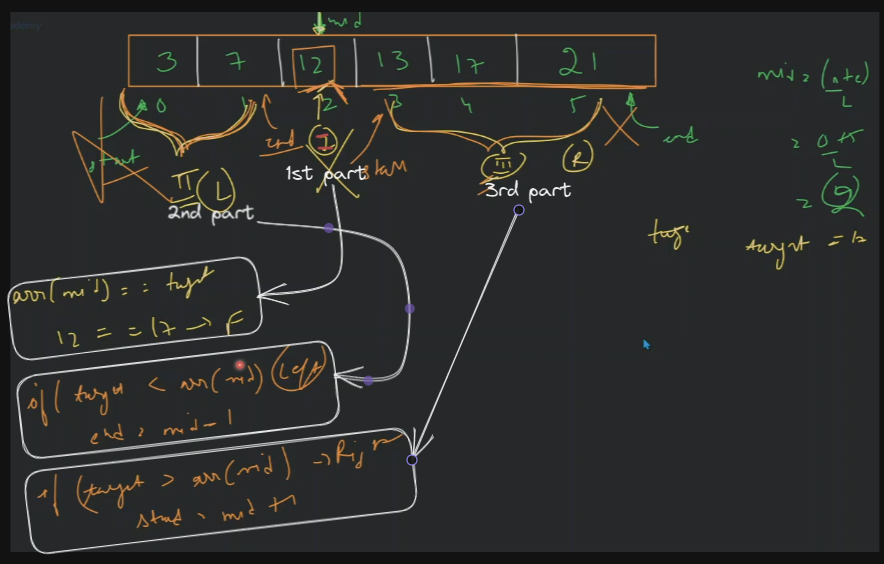 mid
3 7 12 13 17 21
0 1 2 3 4 5
start
end
I
start
end
II L
1st part
III R
2nd part
3rd part
target = 12
arr(mid) == target
12 = = 17 → F
if ( target < arr(mid) (Left)
end = mid - 1
if (target > arr(mid) →
start = mid + 1